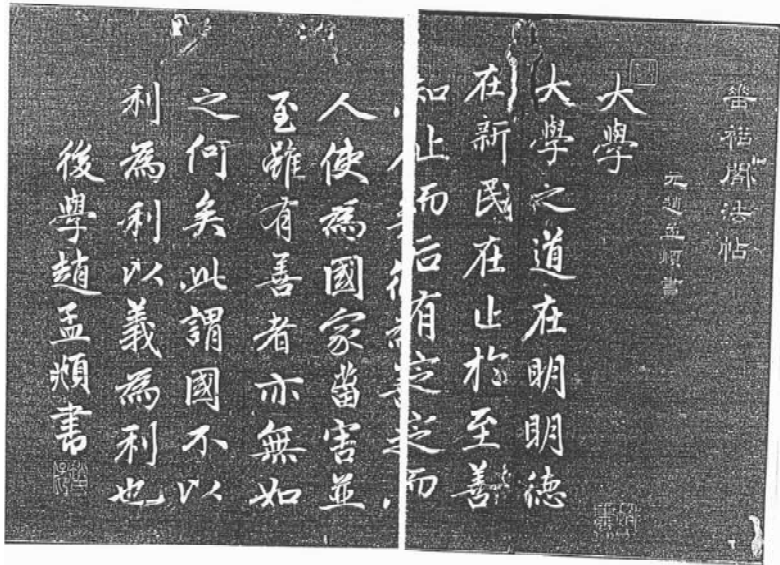 閣法帖
元趙孟頫書
大學
大學之道在明明德
在新民在止於至善
知止而后有定定而
人使為國家菑害並
至雖有善者亦無如
之何矣此謂國不以
利為利以義為利也
後學趙孟頫書